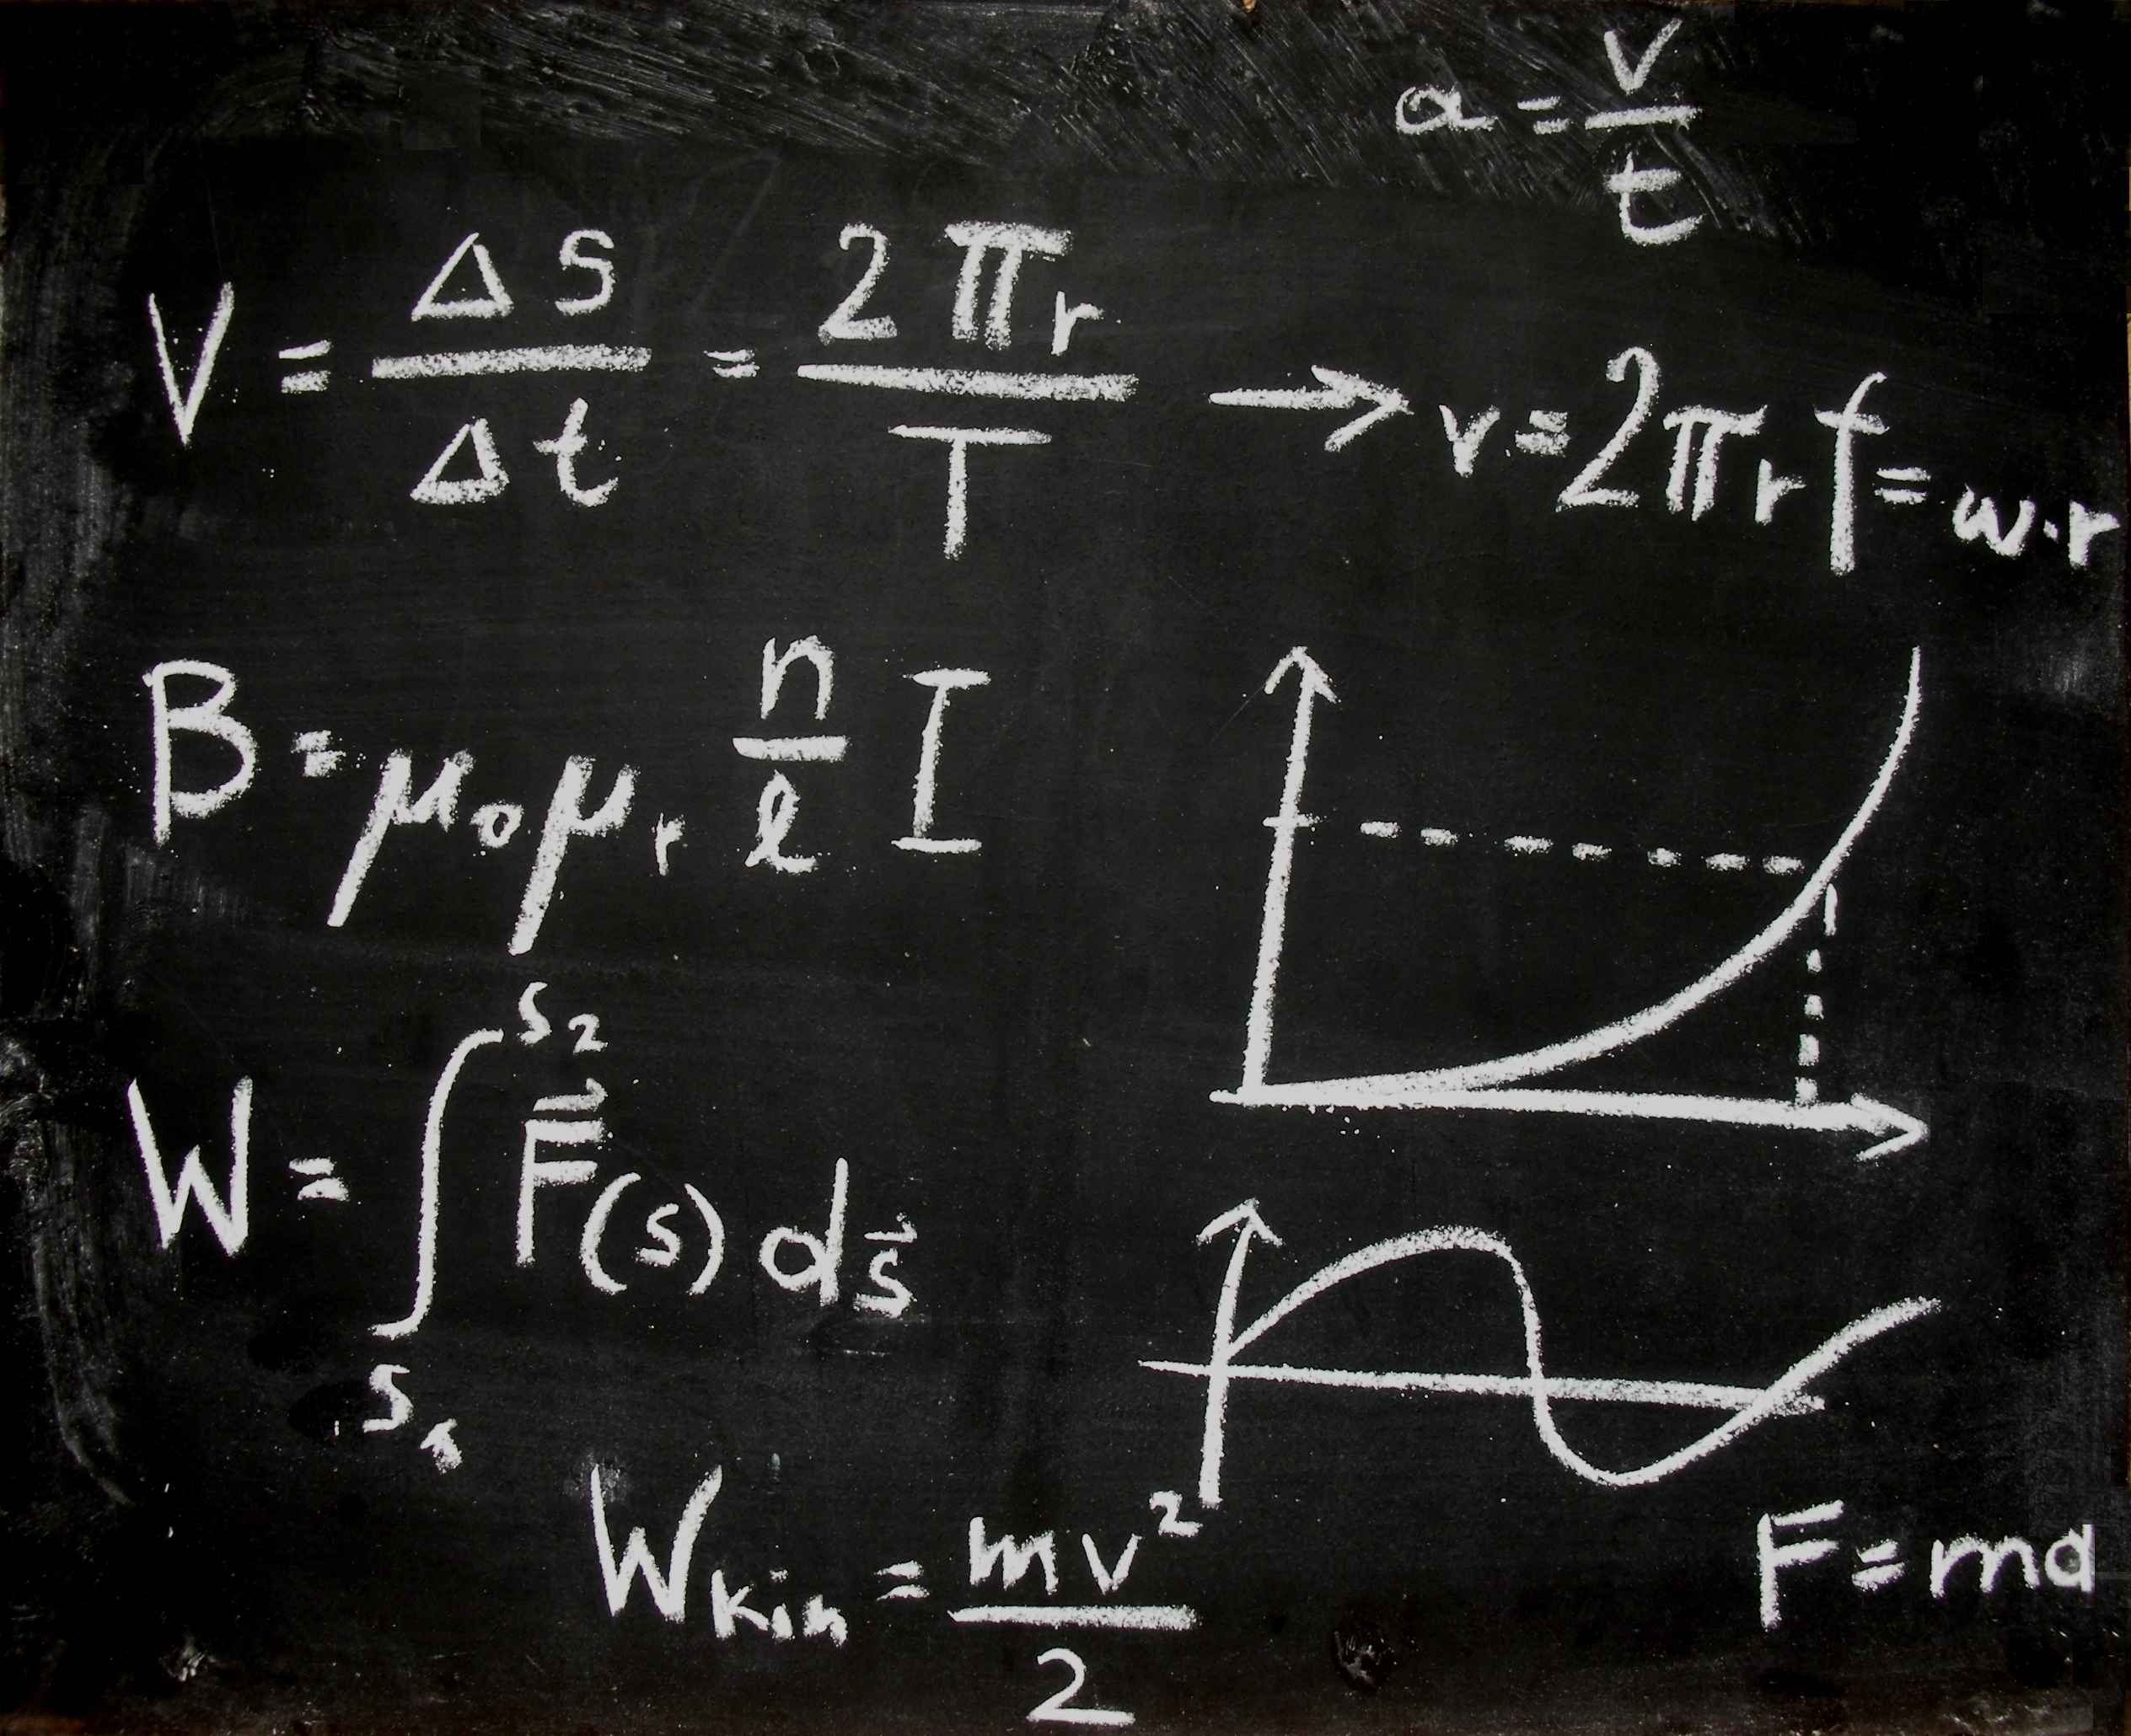 a = v/t
V = Δs/Δt = 2πr/T → v = 2πrf = ω·r
B = μ₀μᵣ n/l I
W = ∫ₛ₁ˢ² F⃗(s) ds⃗
Wkin = mv²/2
F = ma